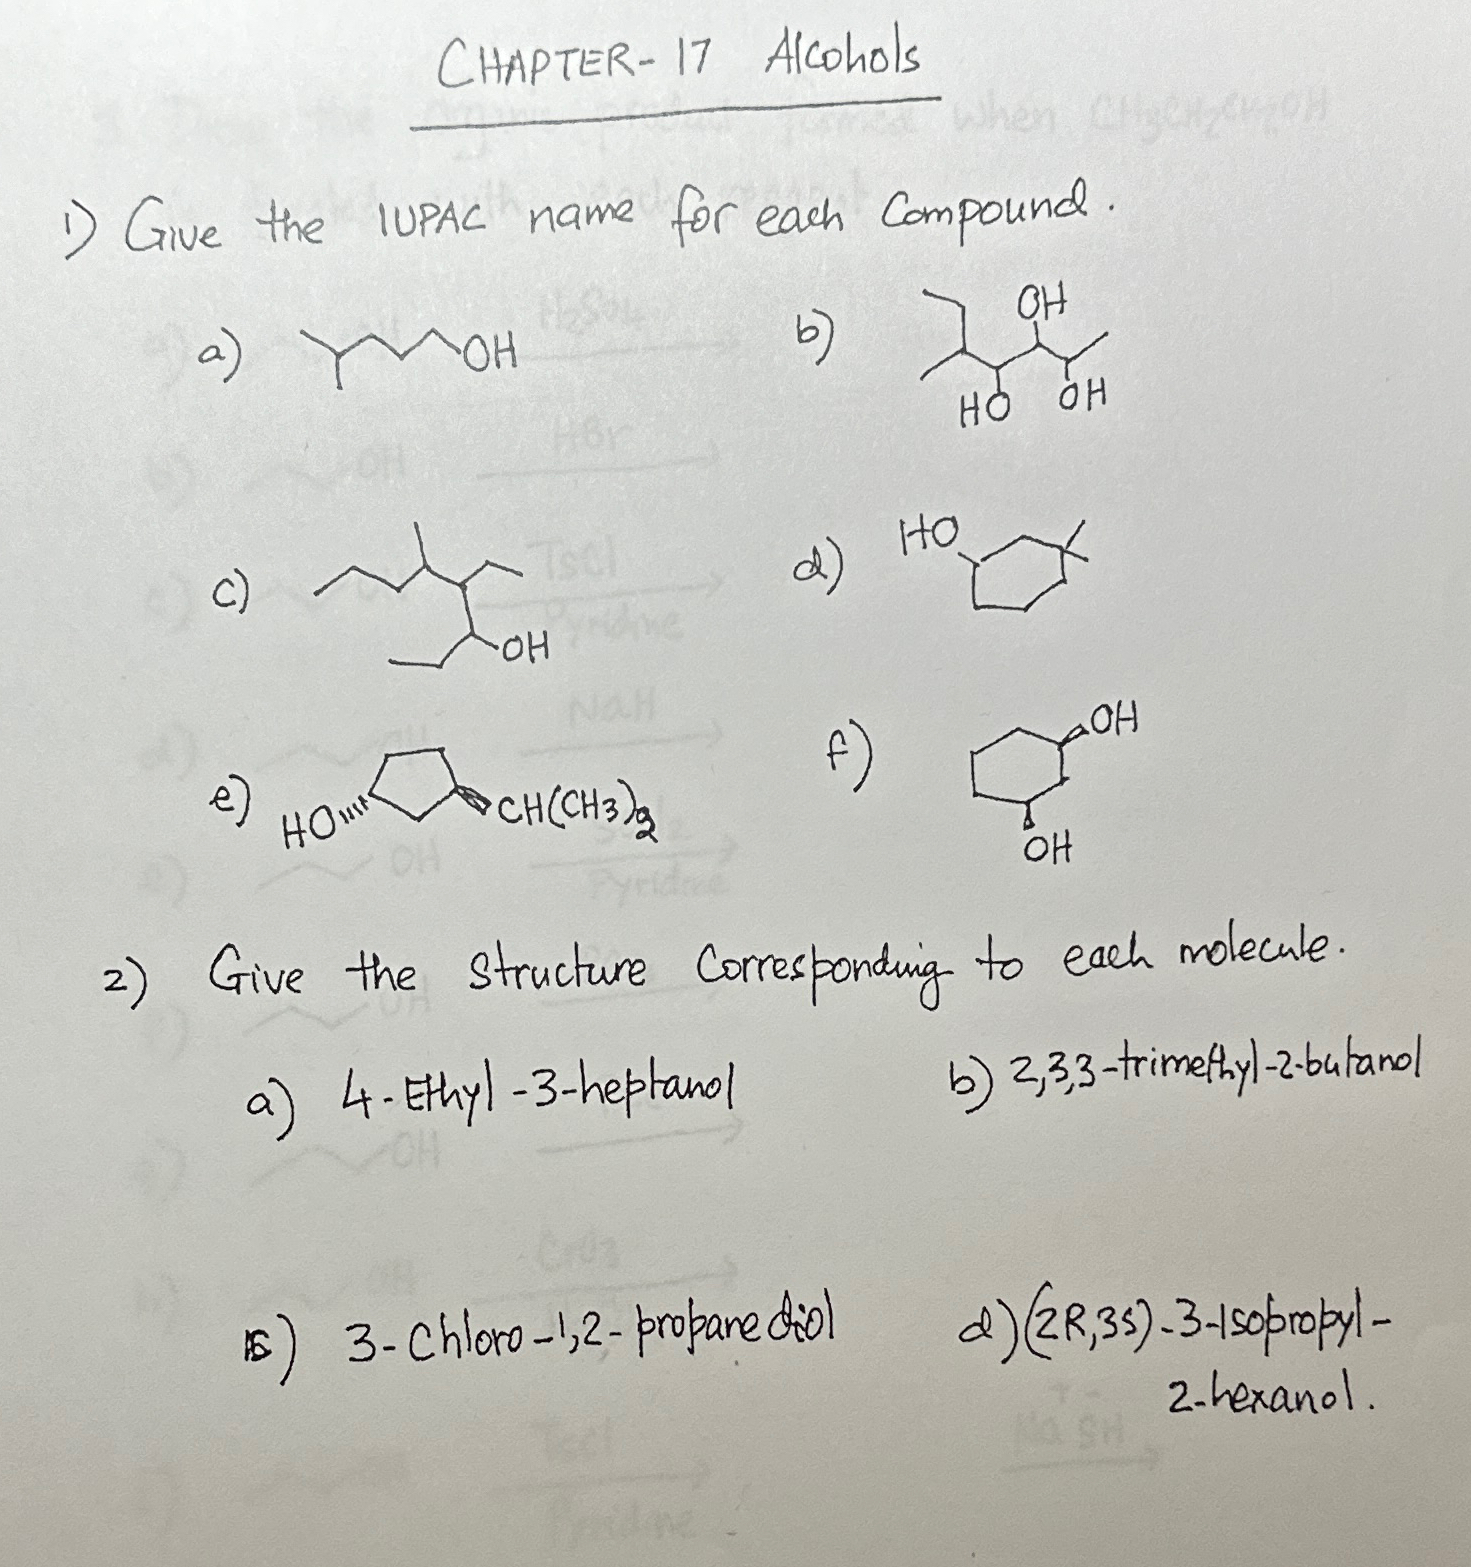 CHAPTER-17 Alcohols
1) Give the IUPAC name for each Compound.
a) OH
b) OH
HO OH
c) OH
d) HO
e) HO CH(CH3)2
f) OH
OH
2) Give the structure Corresponding to each molecule.
a) 4-Ethyl-3-heptanol
b) 2,3,3-trimethyl-2-butanol
c) 3-Chloro-1,2-propane diol
d) (2R,3S)-3-Isopropyl-
2-hexanol.